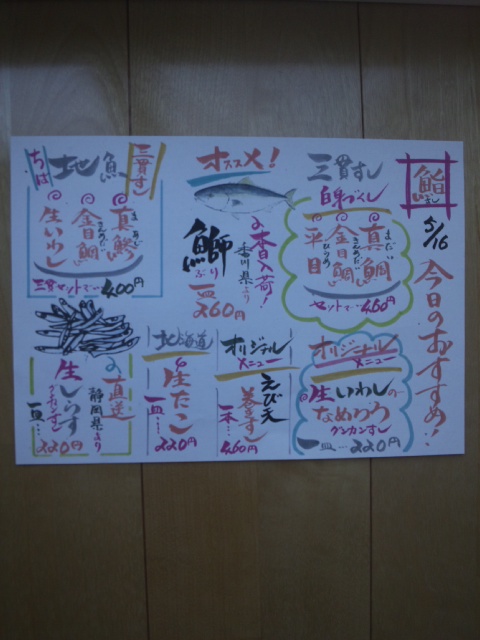 鮨
すし
5/16
今日のおすすめ!!
三貫すし
白身づくし
真鯛
まだい
金目鯛
きんめだい
平目
ひらめ
セットで…460円
オススメ!
本日入荷!
香川県より
鰤
ぶり
一皿
260円
三貫すし
地魚
ちば
真鯵
まあじ
金目鯛
きんめだい
生いわし
三貫セットで…400円
オリジナル
メニュー
生いわしの
なめろう
グンカンすし
一皿…220円
オリジナル
メニュー
えび天
巻きすし
一本…
460円
北海道
生たこ
一皿…
220円
直送
静岡県より
生しらす
グンカンすし
一皿…
220円